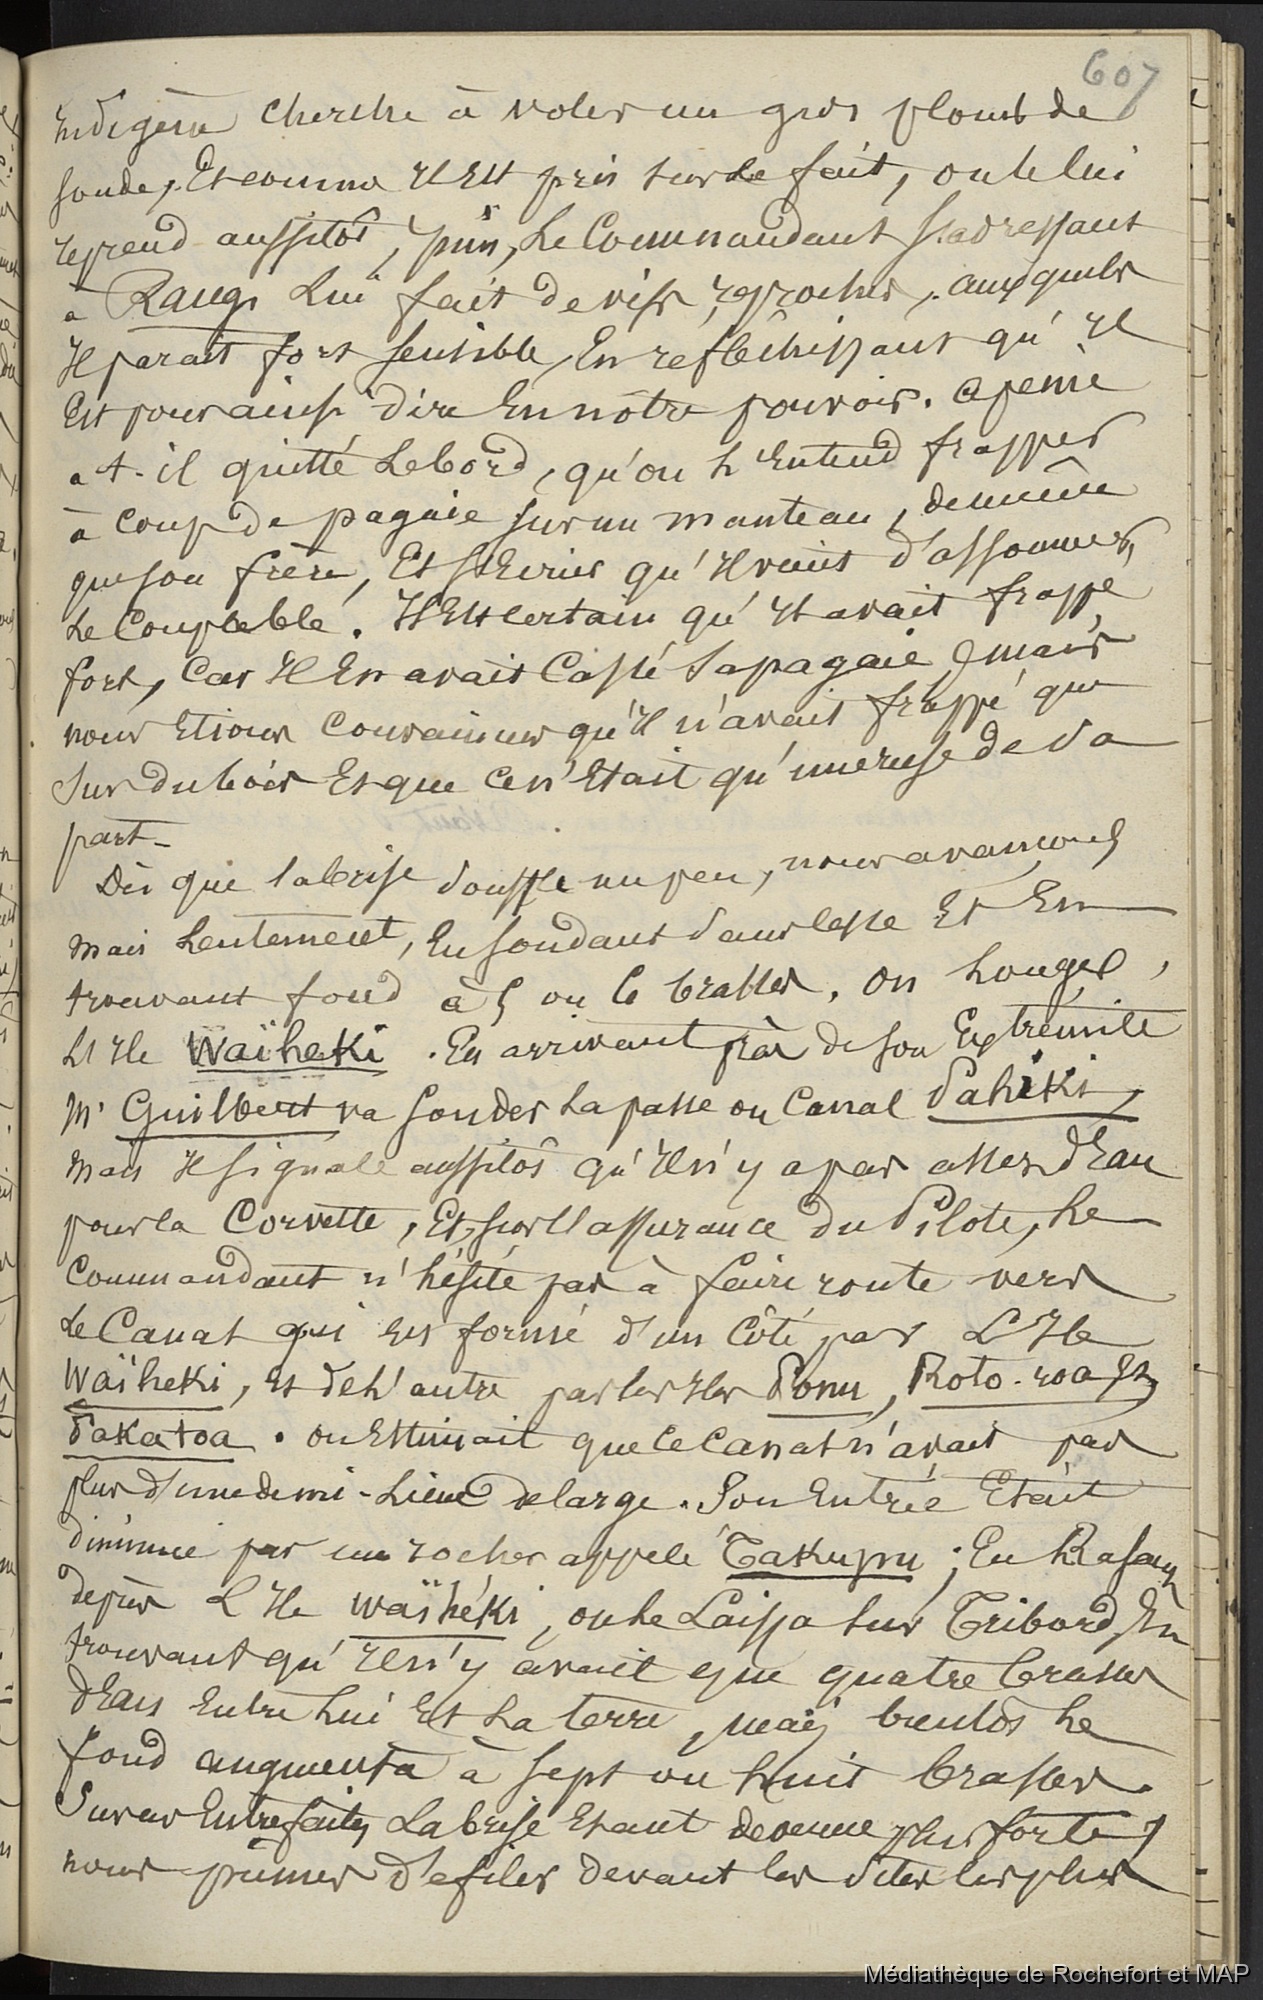 607
indigène cherche à voler un gros plomb de
sonde, Et comme Il Est pris sur le fait, on le lui
reprend aussitôt, puis, Le Commandant S'adressant
à Rangi Lui fait de vifs reproches, auxquels
Il parait fort sensible, En réfléchissant qu'Il
Est pour ainsi dire En nôtre pouvoir. a peine
a-t-il quitté Le bord, qu'on L'Entend frapper
à coup de pagaie sur un manteau, de même
que son frère, Et S'Ecrier qu'Il vient d'assommer,
Le Coupable. Il Est certain qu'Il avait frappé
fort, Car Il En avait Cassé Sa pagaie, mais
nous Etions Convaincus qu'Il n'avait frappé que
Sur du bois Et que Ce n'Etait qu'une ruse de Sa
part-
Dès que la brise souffle un peu, nous avançons
mais Lentement, En sondant Sans Cesse Et En
trouvant fond à 5 ou 6 brasses. On Longea,
L'Ile Waïheki. En arrivant près de son Extrémité
Mr Guilbert va Sonder La passe ou Canal Pahiki,
mais Il signale aussitôt qu'Il n'y a pas assez d'Eau
pour la Corvette, Et, sur l'assurance du Pilote, Le
Commandant n'hésite pas à faire route vers
Le Canal qui Est formé d'un Côté par L'Ile
Waïheki, Et de L'autre par les Iles Ponu, Roto-roa Et
Pakatoa. On Estimait que Ce Canal n'avait pas
plus d'une demi-Lieue de large. Son Entrée Etait
diminuée par un rocher appelé Takupu; En Rasant
depuis L'Ile Waïhéki, on Le Laissa sur Tribord, En
trouvant qu'Il n'y avait que quatre brasses
d'Eau Entre Lui Et La terre, mais bientôt Le
fond augmenta à Sept ou huit brasses.
Sur ces Entrefaites La brise Etant devenue plus forte,
nous pûmes défiler devant les Sites les plus
Médiathèque de Rochefort et MAP